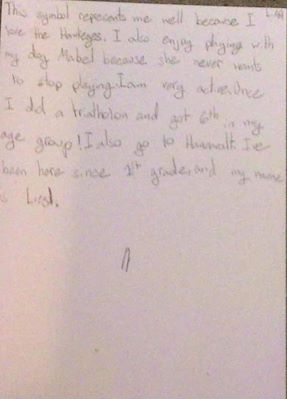 This symbol represents me well because I
love the Hawkeyes. I also enjoy playing with
my dog Mabel because she never wants
to stop playing. I am very active. Once
I did a triathalon and got 6th in my
age group! I also go to Hunnwalt I've
been here since 1st grade, and my name
is